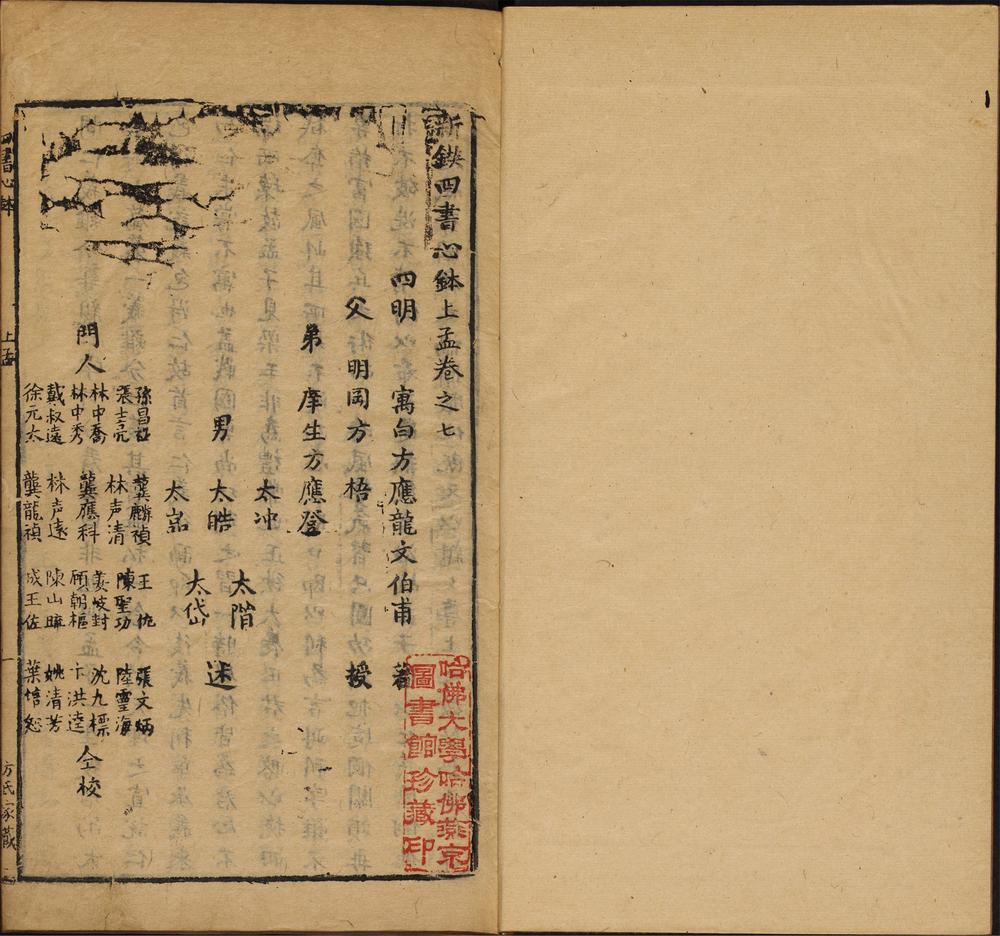 新鍥四書心鉢上孟卷之七
四明 寓白方應龍文伯甫 著
父明岡方梧 授
弟庠生方應登
男 太冲 太階
太皓 述
太岱
門人
孫昌 龔麟禎 王 張文炳
張士亮 林声清 陳聖功 陸雲海
林中喬 龔應科 姜岐封 沈九標
林中秀 顧朝樞 卞洪逵
戴叔遠 林声遠 陳山 姚清芳
徐元太 龔龍禎 成王佐 葉恕
仝校
哈佛大學哈佛燕京
圖書館珍藏印
書心鉢
上孟
一
方氏家藏